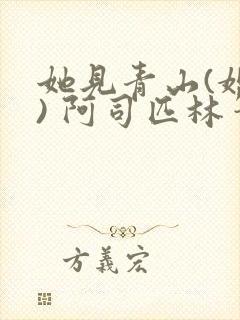 她见青山(婚
) 阿司匹林
方義宏